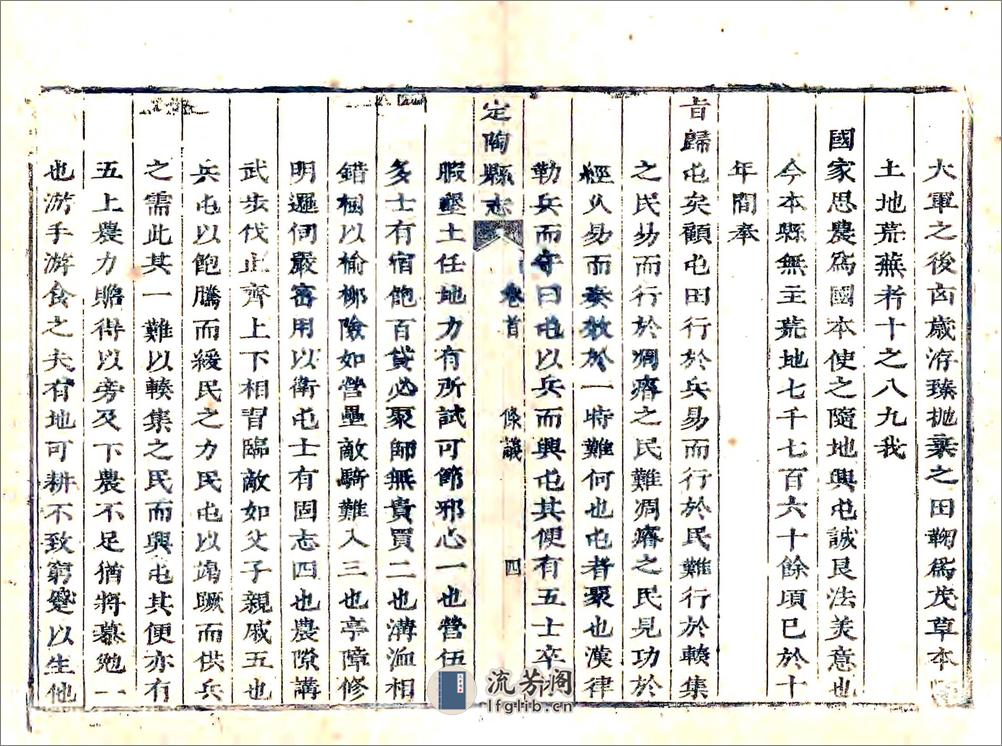 大軍之後凶歲洊臻拋棄之田鞠爲茂草本
土地荒蕪者十之八九我
國家思農爲國本使之隨地興屯誠良法美意也
今本縣無主荒地七千七百六十餘頃已於十
年間奉
旨歸屯矣顧屯田行於兵易而行於民難行於輳集
之民易而行於凋瘵之民難凋瘵之民見功於
經久易而奏效於一時難何也屯者聚也漢律
勒兵而守曰屯以兵而興屯其便有五士卒
定陶縣志 卷首 條議 四
暇墾土任地力有所試可節邪心一也營伍
多士有宿飽百貨必聚師無貴買二也溝洫相
錯樹以榆柳險如營壘敵騎難入三也亭障修
明邏伺嚴審用以衛屯士有固志四也農隙講
武步伐止齊上下相習臨敵如父子親戚五也
兵屯以飽騰而緩民之力民屯以竭蹶而供兵
之需此其一難以輳集之民而興屯其便亦有
五上農力贍得以旁及下農不足猶將慕勉一
也游手游食之夫有地可耕不致窮蹙以生他
流芳阁
lfglib.cn